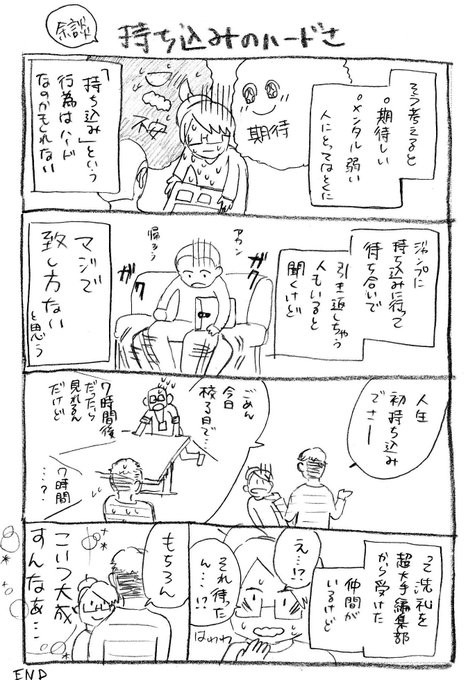 余談
持ち込みのハードさ
そう考えると
期待しい
メンタル弱い
人にとってはとくに
期待
不安
「持ち込み」という
行為はハード
なのかもしれない
ジャンプに
持ち込みに行って
待ち合いで
引き返しちゃう
人もいると
聞くけど
アカン
帰ろう
ガク
ガク
マジで
致し方ない
と思う
人生
初持ち込み
でさー
ごめん
今日
校了日で…
7時間後
だったら
見れるん
だけど
7時間
…?
って洗礼を
超大手編集部
から受けた
仲間が
いるけど
え…!?
それ待った
ん…!?
はわわ
もちろん
こいつ大成
すんなぁ…
END